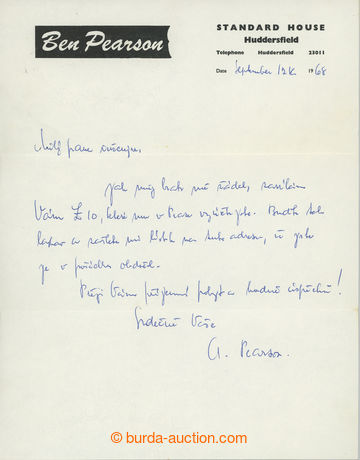 Ben Pearson
STANDARD HOUSE
Huddersfield
Telephone Huddersfield 23011
Date September 12th 1968
Milý pane
Jak můj bratr mě žádal, zasílám
Vám £ 10, které mu v Praze vyplatíte. Buďte tak
laskav a na tuto adresu, že jste
je v pořádku obdržel.
Přeji Vám příjemný pobyt a hodně úspěchů!
Srdečně Vaše
A. Pearson.
© burda-auction.com